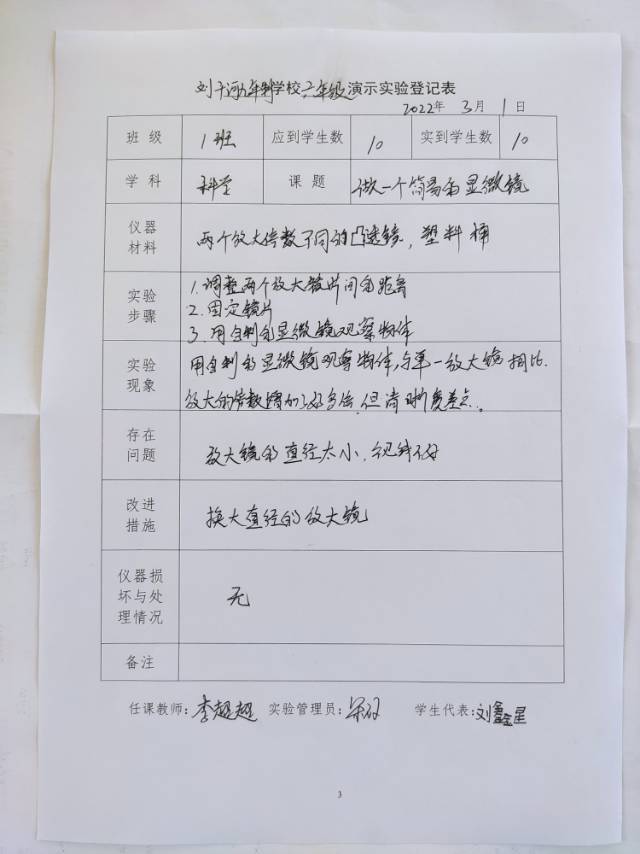 刘 河九年制学校六年级演示实验登记表
2022年 3月 1日
班 级 1班 应到学生数 10 实到学生数 10
学 科 科学 课 题 做一个简易的显微镜
仪器 材料 两个放大倍数不同的凸透镜，塑料桶
1.调整两个放大镜片间的距离
实验 步骤 2.固定镜片
3.用自制的显微镜观察物体
实验 用自制的显微镜观察物体,与单一放大镜相比.
现象 放大的倍数增加了好多倍.但清晰度差点.
存在 问题 放大镜的直径太小.视线不好
改进 措施 换大直径的放大镜
仪器损 坏与处 理情况 无
备注
任课教师:李超超 实验管理员: 学生代表:刘鑫星
3